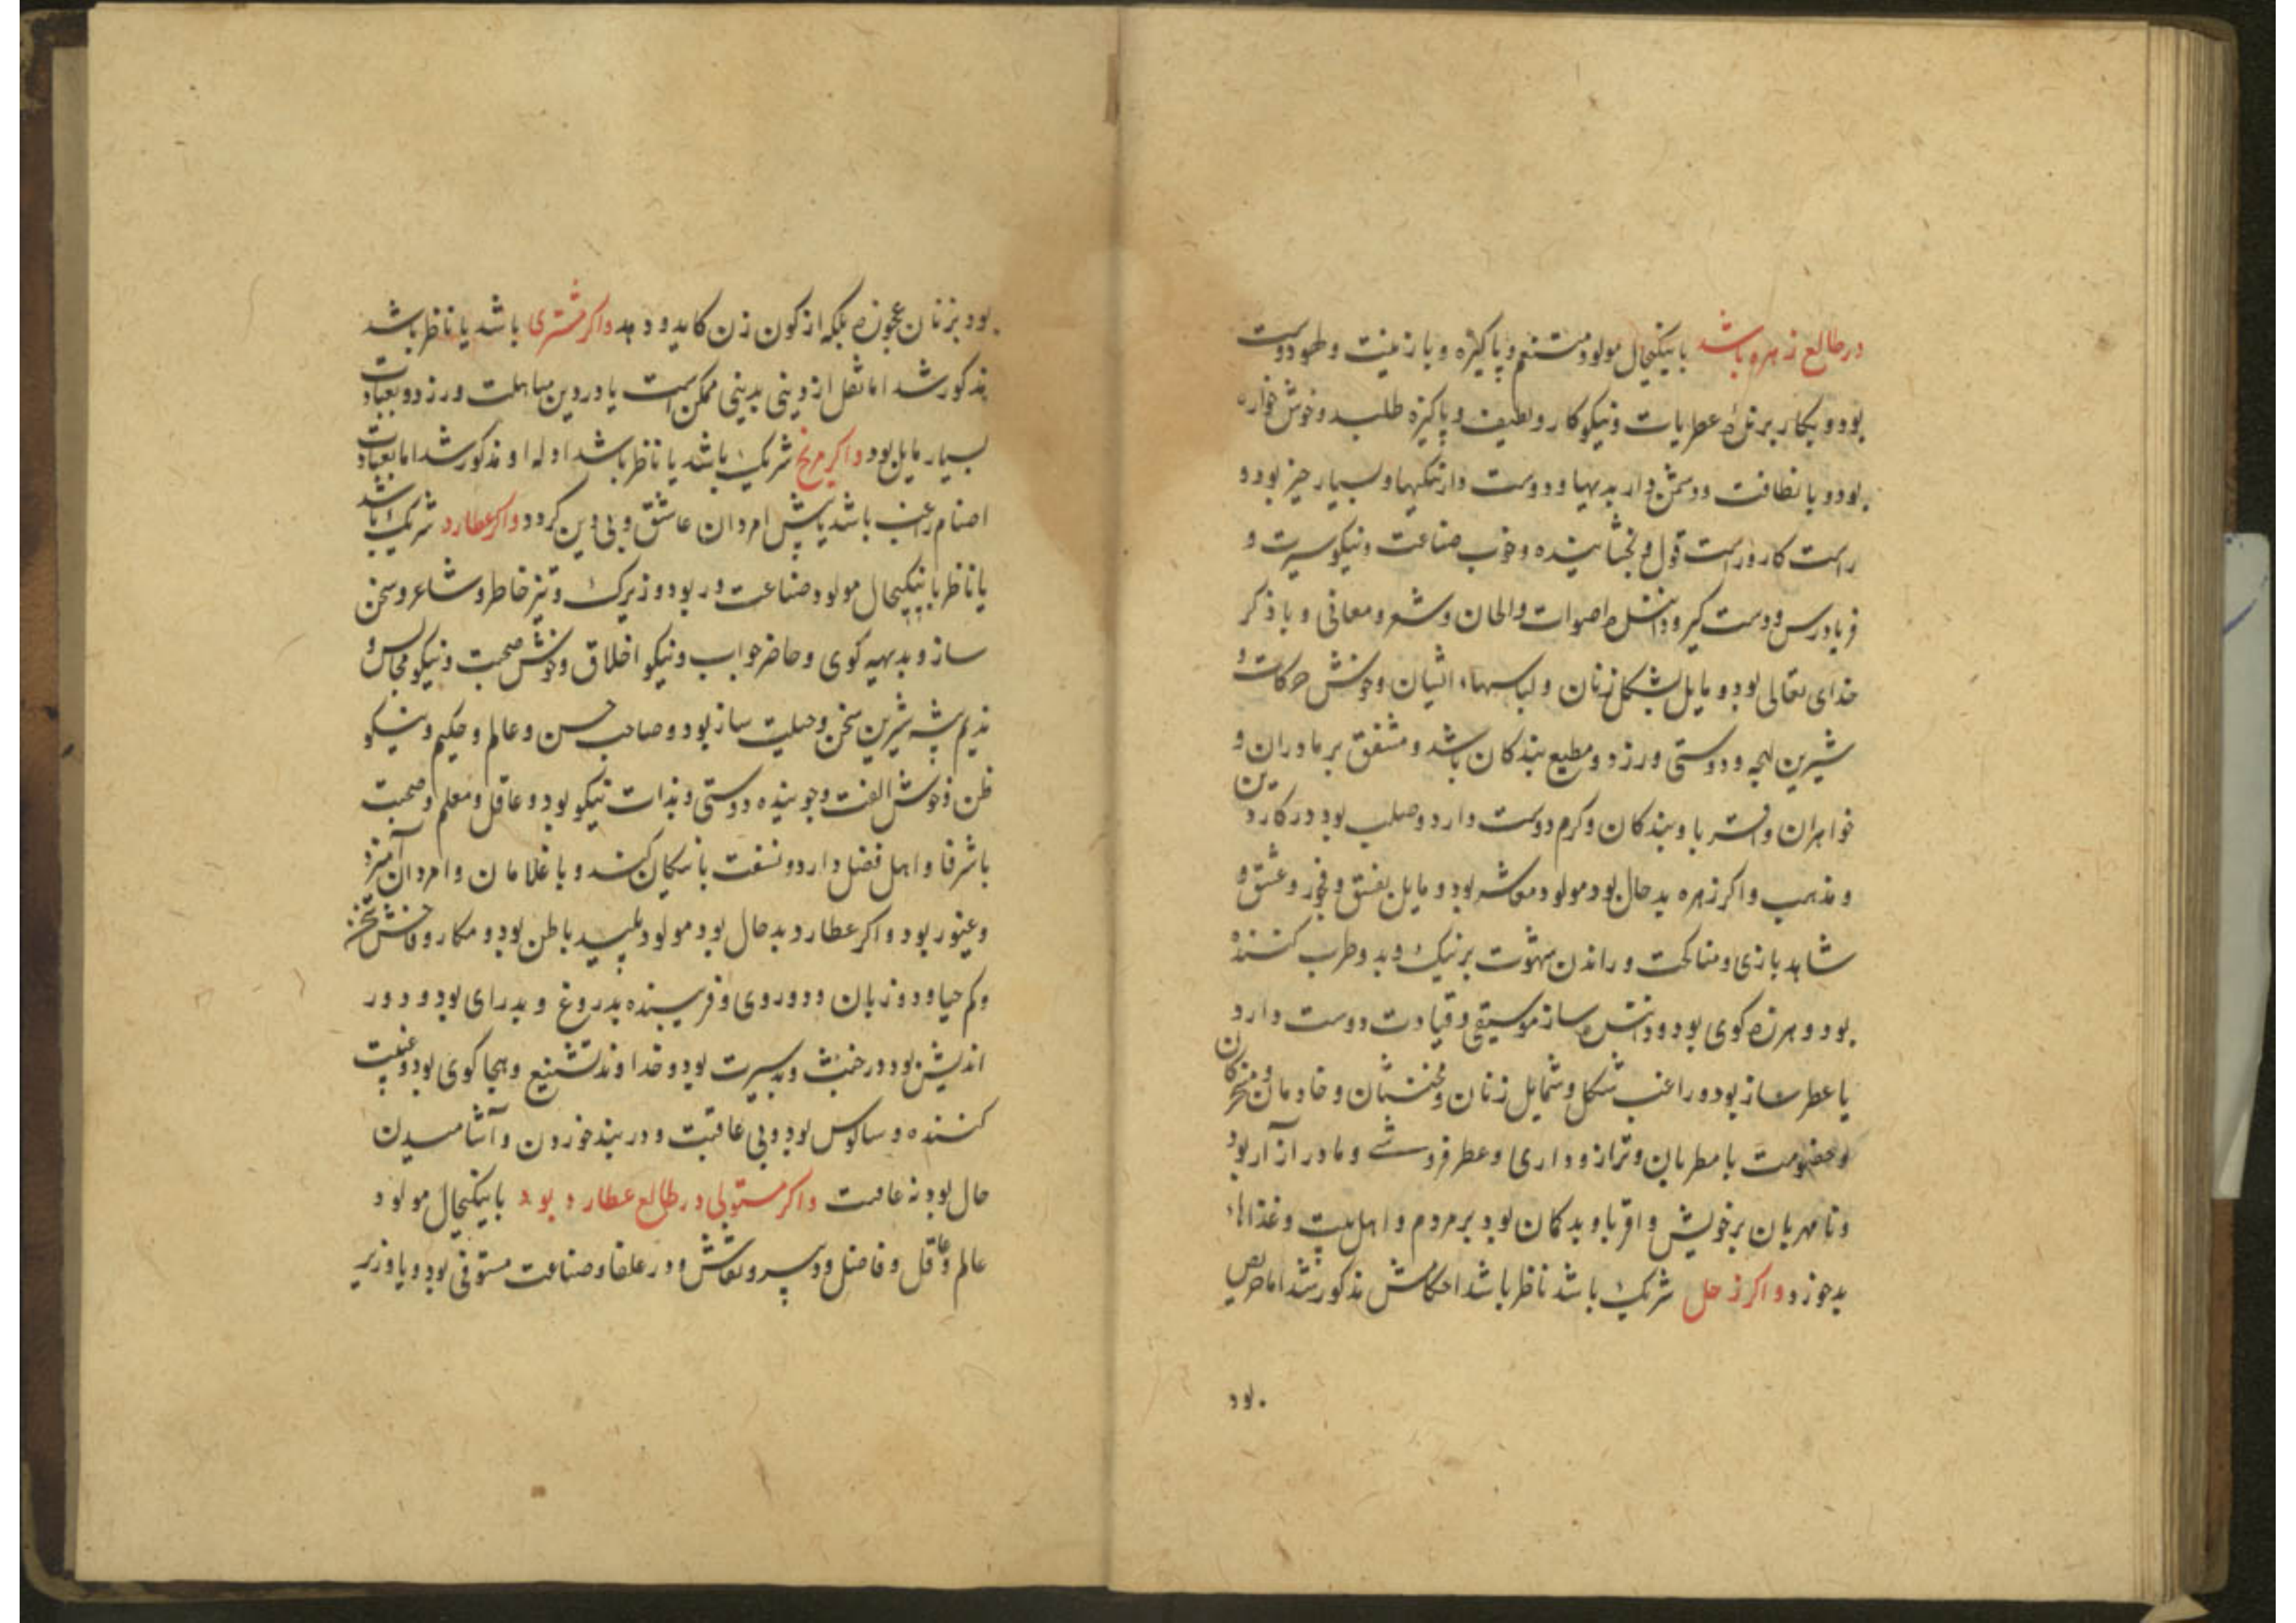 در طالع زهره باشد با نیکیحال مولود متنعم و پاکیزه و بازینت و طهو دوست
بود و بکار برنده عطریات و نیکوکار و لطیف و پاکیزه طلب و خوش خواره
بود و با نظافت و دشمن دارد بدیها و دوست دارد نیکیها و بسیار خیر بود و
راست کار و راست قول و بخشاینده و خوب صناعت و نیکو سیرت و
فریادرس و دست کیر و داننده اصوات و الحان و شعر و معانی و با ذکر
خدای تعالی بود و مایل بشکل زنان و لباسهاء ایشان و خوش حرکات و
شیرین لهجه و دوستی ورزد و مطیع بندکان باشد و مشفق بر مادران و
خواهران و اقربا و بندکان و کرم دوست دارد و صلب بود در کار دین
و مذهب و اکر زهره بد حال بود مولود بود و مایل بفسق و فجور و عشق و
شاهد بازی و مناکحت و راندن شهوت بر نیک و بد و طرب کننده
بود و هرزه کوی بود و داننده ساز موسیقی و قیادت دوست دارد
یا عطر ساز بود و راغب شکل و شمایل زنان و مخنثان و خادمان و مسخرکان
و خصومت با مطربان و ترازو داری و عطر فروشی و مادر آزار بود
و نامهربان بر خویش و اقربا و بد کمان بود بر مردم و اهل بیت و غذاهاء
بد خورد و اکر زحل شریک باشد ناظر باشد احکامش مذکور شد اما حریص
بود
بود بزنان عجوزه بلکه از کون زن کاید و دهد و اکر مشتری باشد یا ناظر باشد
مذکور شد اما نقل از دینی بدینی ممکن است یا در دین مساهلت ورزد و بعبادت
بسیار مایل بود و اکر مریخ شریک باشد یا ناظر باشد ادله او مذکور شد اما بعبادت
اصنام راغب باشد یا پیش امردان عاشق و بی دین کردد و اکر عطارد شریک باشد
یا ناظر با نیکیحال مولود صناعت ور بود و زیرک و تیز خاطر و شاعر و سخن
ساز و بدیهه کوی و حاضر جواب و نیکو اخلاق و خوش صحبت و نیکو مجالس و
ندیم پیشه شیرین سخن و حیلت ساز بود و صاحب حسن و عالم و حکیم و نیکو
ظن و خوش الفت و جوینده دوستی و بذات نیکو بود و عاقل و معلم و صحبت
با شرفا و اهل فضل دارد و شفقت با نیکان کند و با غلامان و امردان آمیزد
و غیور بود و اکر عطارد بد حال بود مولود پلید باطن بود و مکار و فاحش سخن
و کم حیا و دو زبان و دوروی و فریبنده بدروغ و بد رای بود و دور
اندیش بود در خبث و بد سیرت بود و خداوند تشنیع و هجا کوی بود و غیبت
کننده و سالوس بود و بی عاقبت و در بند خوردن و آشامیدن
حال بود نه عاقبت و اکر مستولی در طالع عطارد بود با نیکیحال مولود
عالم و عاقل و فاضل و دبیر و نقاش و در علفا و صناعت مستوفی بود و یا وزیر